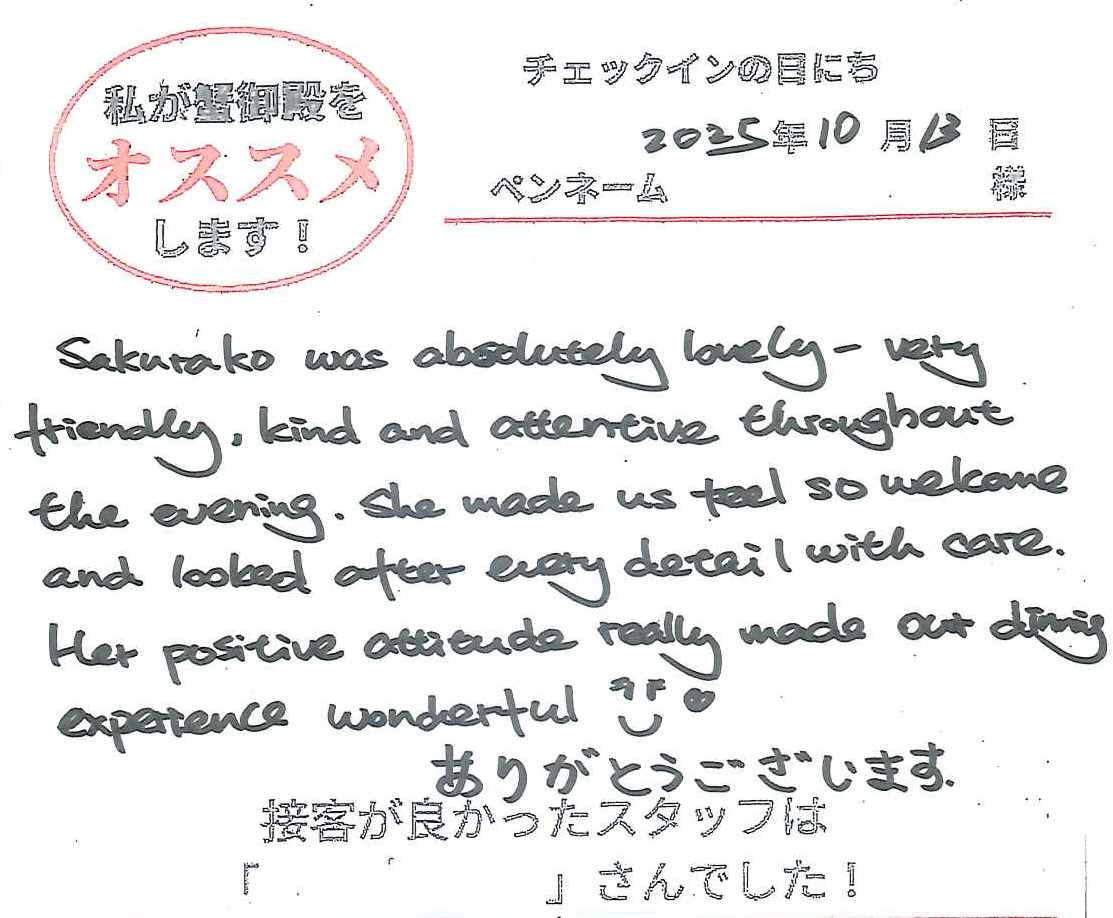 私が蟹御殿を
オススメ
します！
チェックインの日にち
2025年10月13日
ペンネーム 様
Sakurako was absolutely lovely - very
friendly, kind and attentive throughout
the evening. She made us feel so welcome
and looked after every detail with care.
Her positive attitude really made our dining
experience wonderful
ありがとうございます.
接客が良かったスタッフは
「 」さんでした！